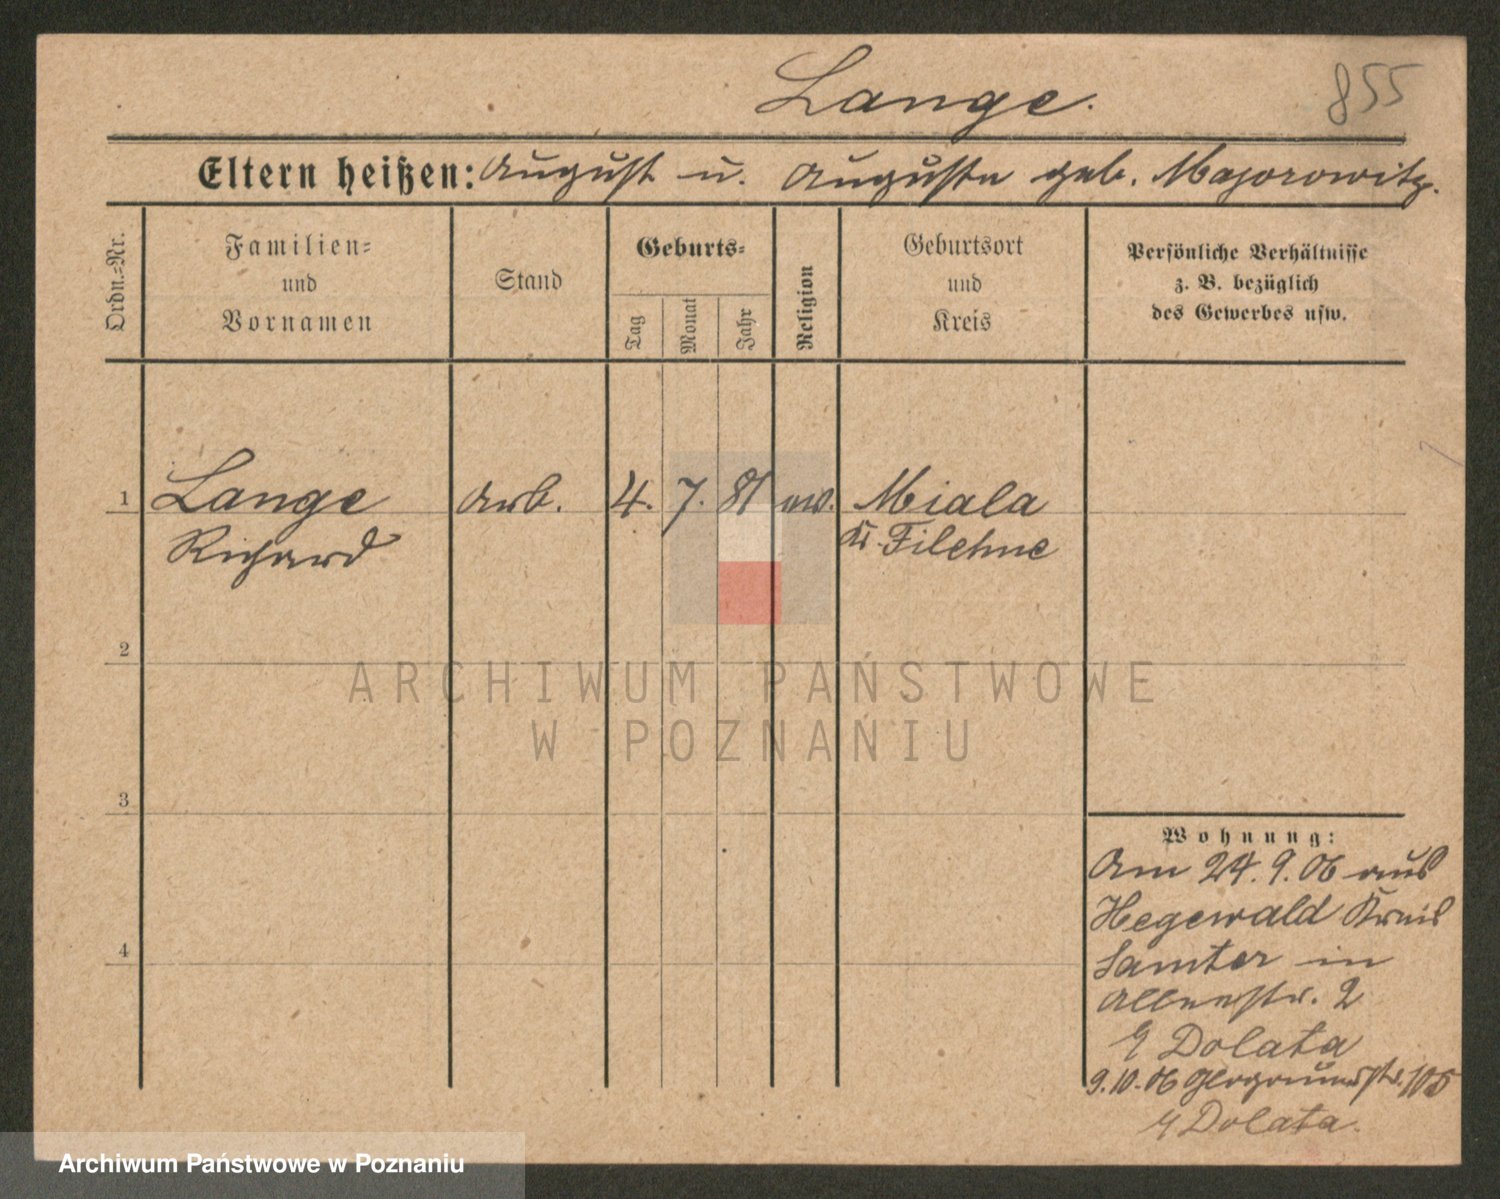 Lange.
855
Eltern heißen: August u. Auguste geb. Majorowitz.
Ordn.=Nr.
Familien=
und
Vornamen
Stand
Geburts=
Tag
Monat
Jahr
Religion
Geburtsort
und
Kreis
Persönliche Verhältnisse
z. B. bezüglich
des Gewerbes usw.
1 Lange Arb. 4. 7. 81 ev. Miala
Richard Kr. Filehne
2
ARCHIWUM PAŃSTWOWE
W POZNANIU
3
Wohnung:
Am 24. 9. 06 aus
Hegewald Kreis
Samter in
Allerstr. 2
4
Dolata
9.10.06 105
Dolata.
Archiwum Państwowe w Poznaniu